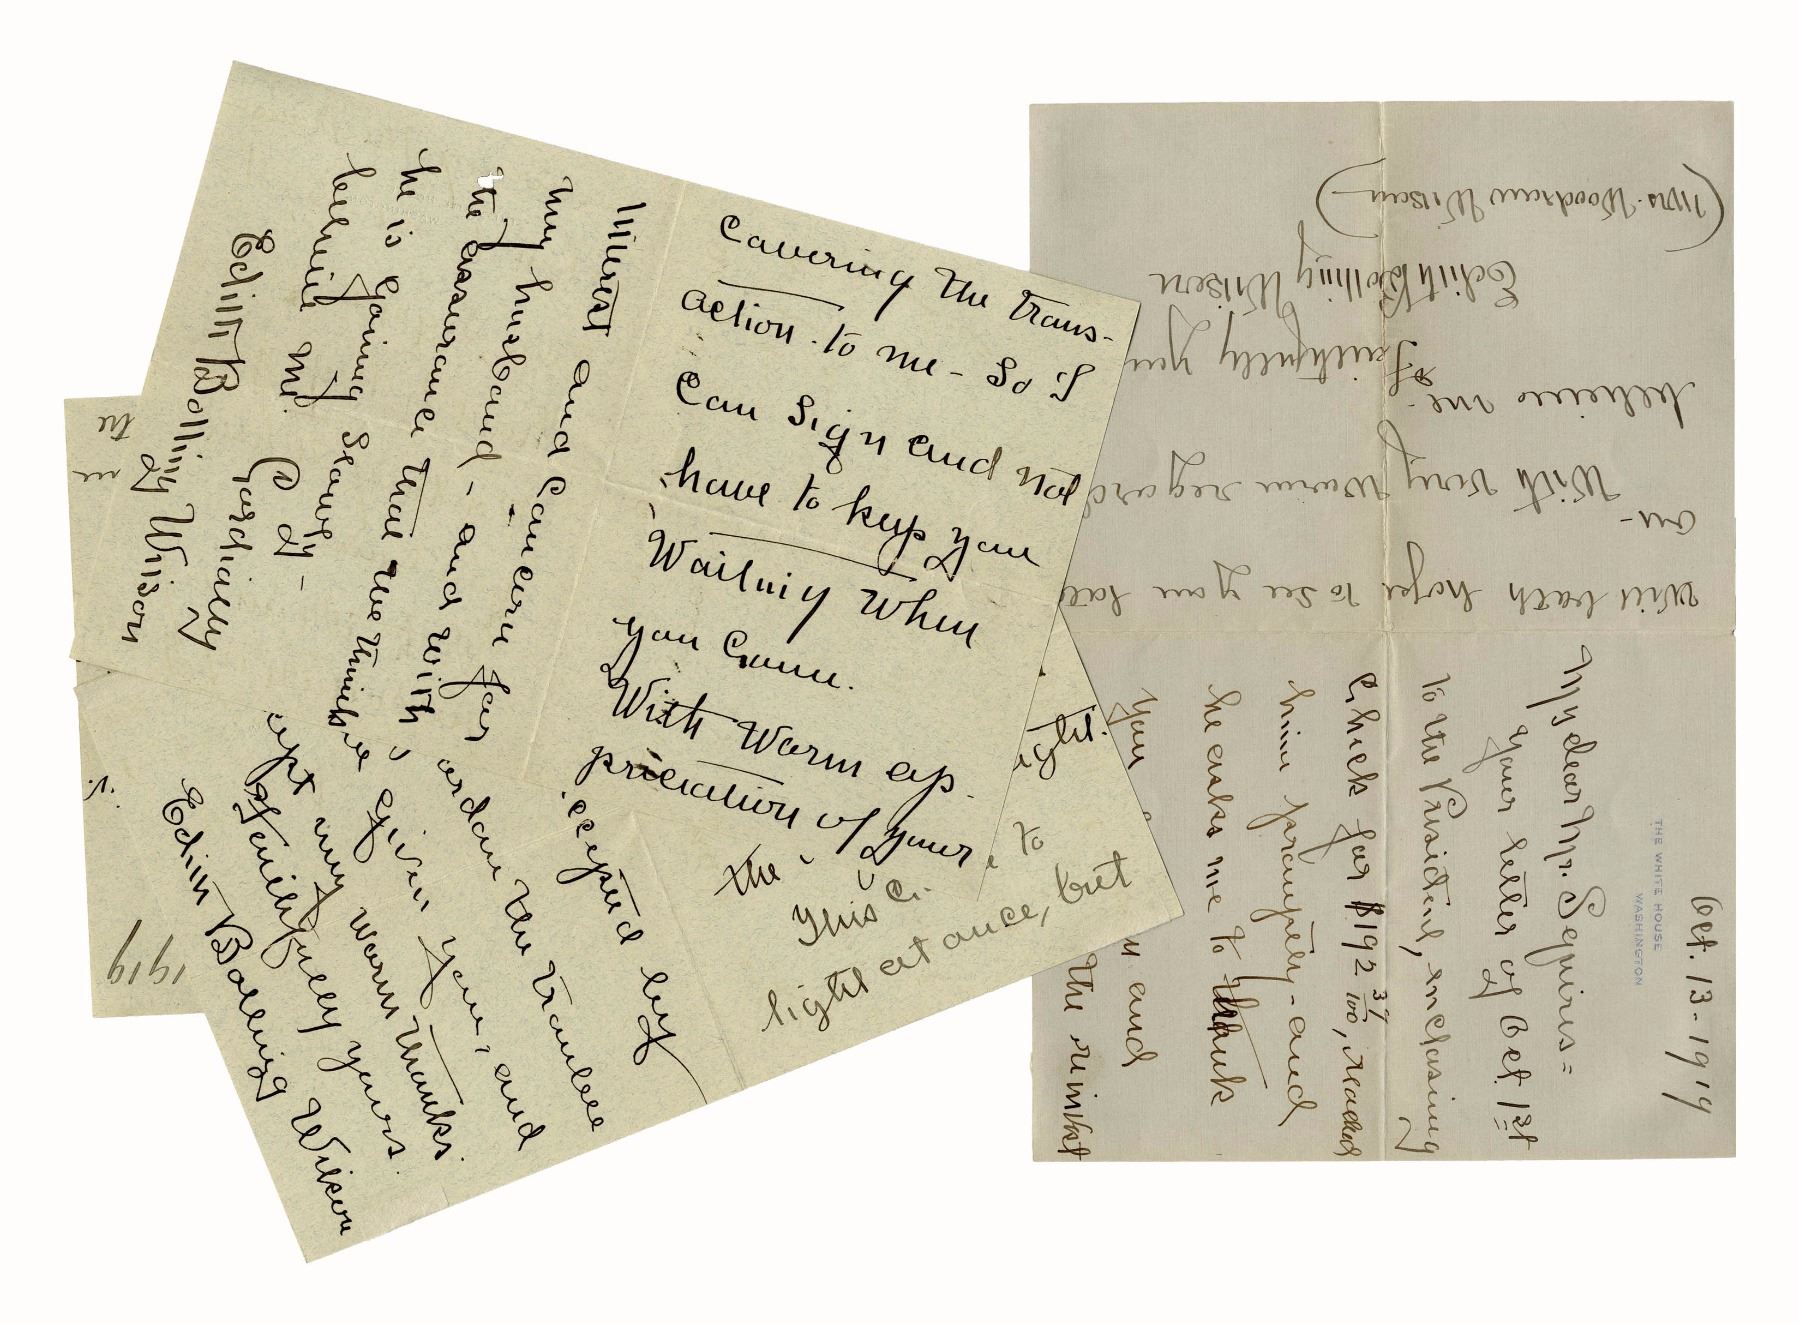 Oct. 13-1919
THE WHITE HOUSE
WASHINGTON
My dear Mr. Squires=
Your letter of Oct. 1st
to the President, enclosing
check for $192 37/100, reached
him promptly - and
he asks me to thank
you
and
the
Will both hope to see you
on-
With very warm regard
believe me.
Faithfully you
Edith Bolling Wilson
(Mrs. Woodrow Wilson)
covering the trans-
action. to me - So I
can sign and not
have to keep you
Waiting when
you come.
With warm ap-
preciation of your
interest and concern for
my husband - and with
the assurance that we think
he is gaining slowly -
believe me.
Cordially
Edith Bolling Wilson
the
this
light at once, but
to
ight.
cepted by
ardon the trouble
given you, and
ept my warm thanks.
Faithfully yours.
Edith Bolling Wilson
the
1919